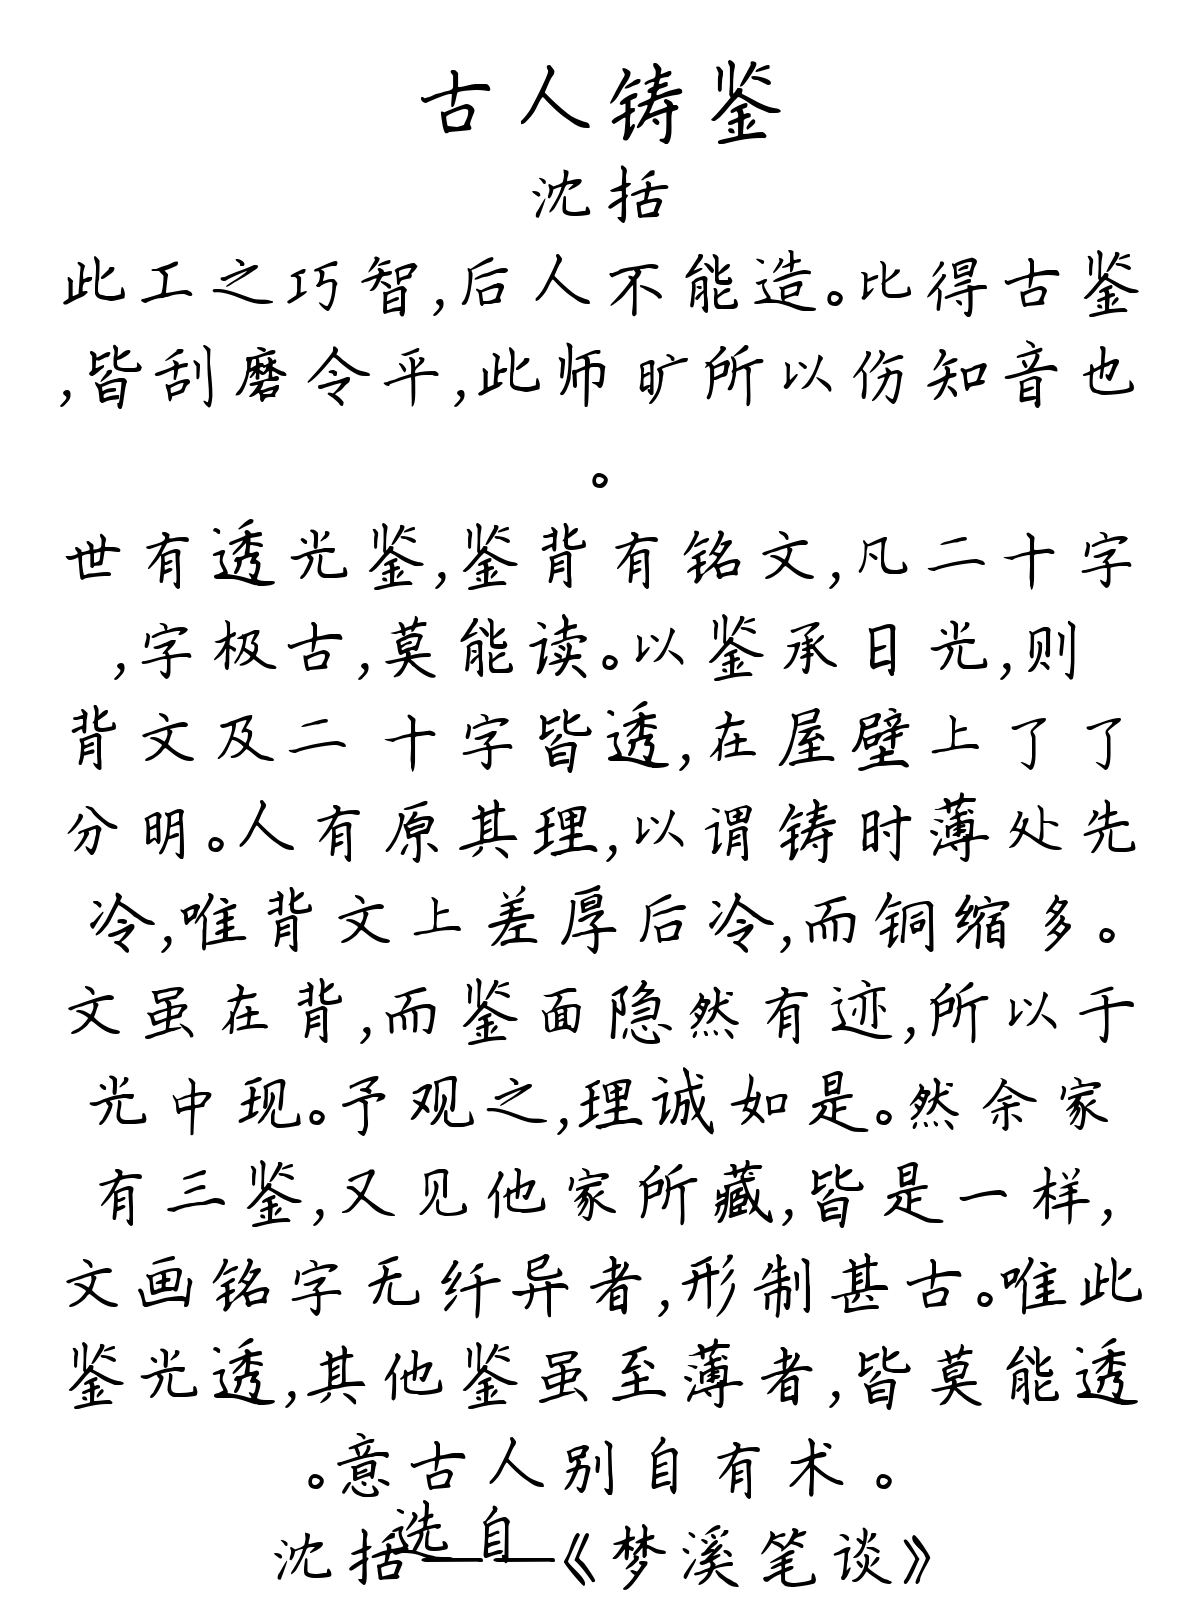 古人铸鉴
沈括
此工之巧智,后人不能造。比得古鉴
,皆刮磨令平,此师旷所以伤知音也
。
世有透光鉴,鉴背有铭文,凡二十字
,字极古,莫能读。以鉴承日光,则
背文及二十字皆透,在屋壁上了了
分明。人有原其理,以谓铸时薄处先
冷,唯背文上差厚后冷,而铜缩多。
文虽在背,而鉴面隐然有迹,所以于
光中现。予观之,理诚如是。然余家
有三鉴,又见他家所藏,皆是一样,
文画铭字无纤异者,形制甚古。唯此
鉴光透,其他鉴虽至薄者,皆莫能透
。意古人别自有术。
选自
沈括——《梦溪笔谈》